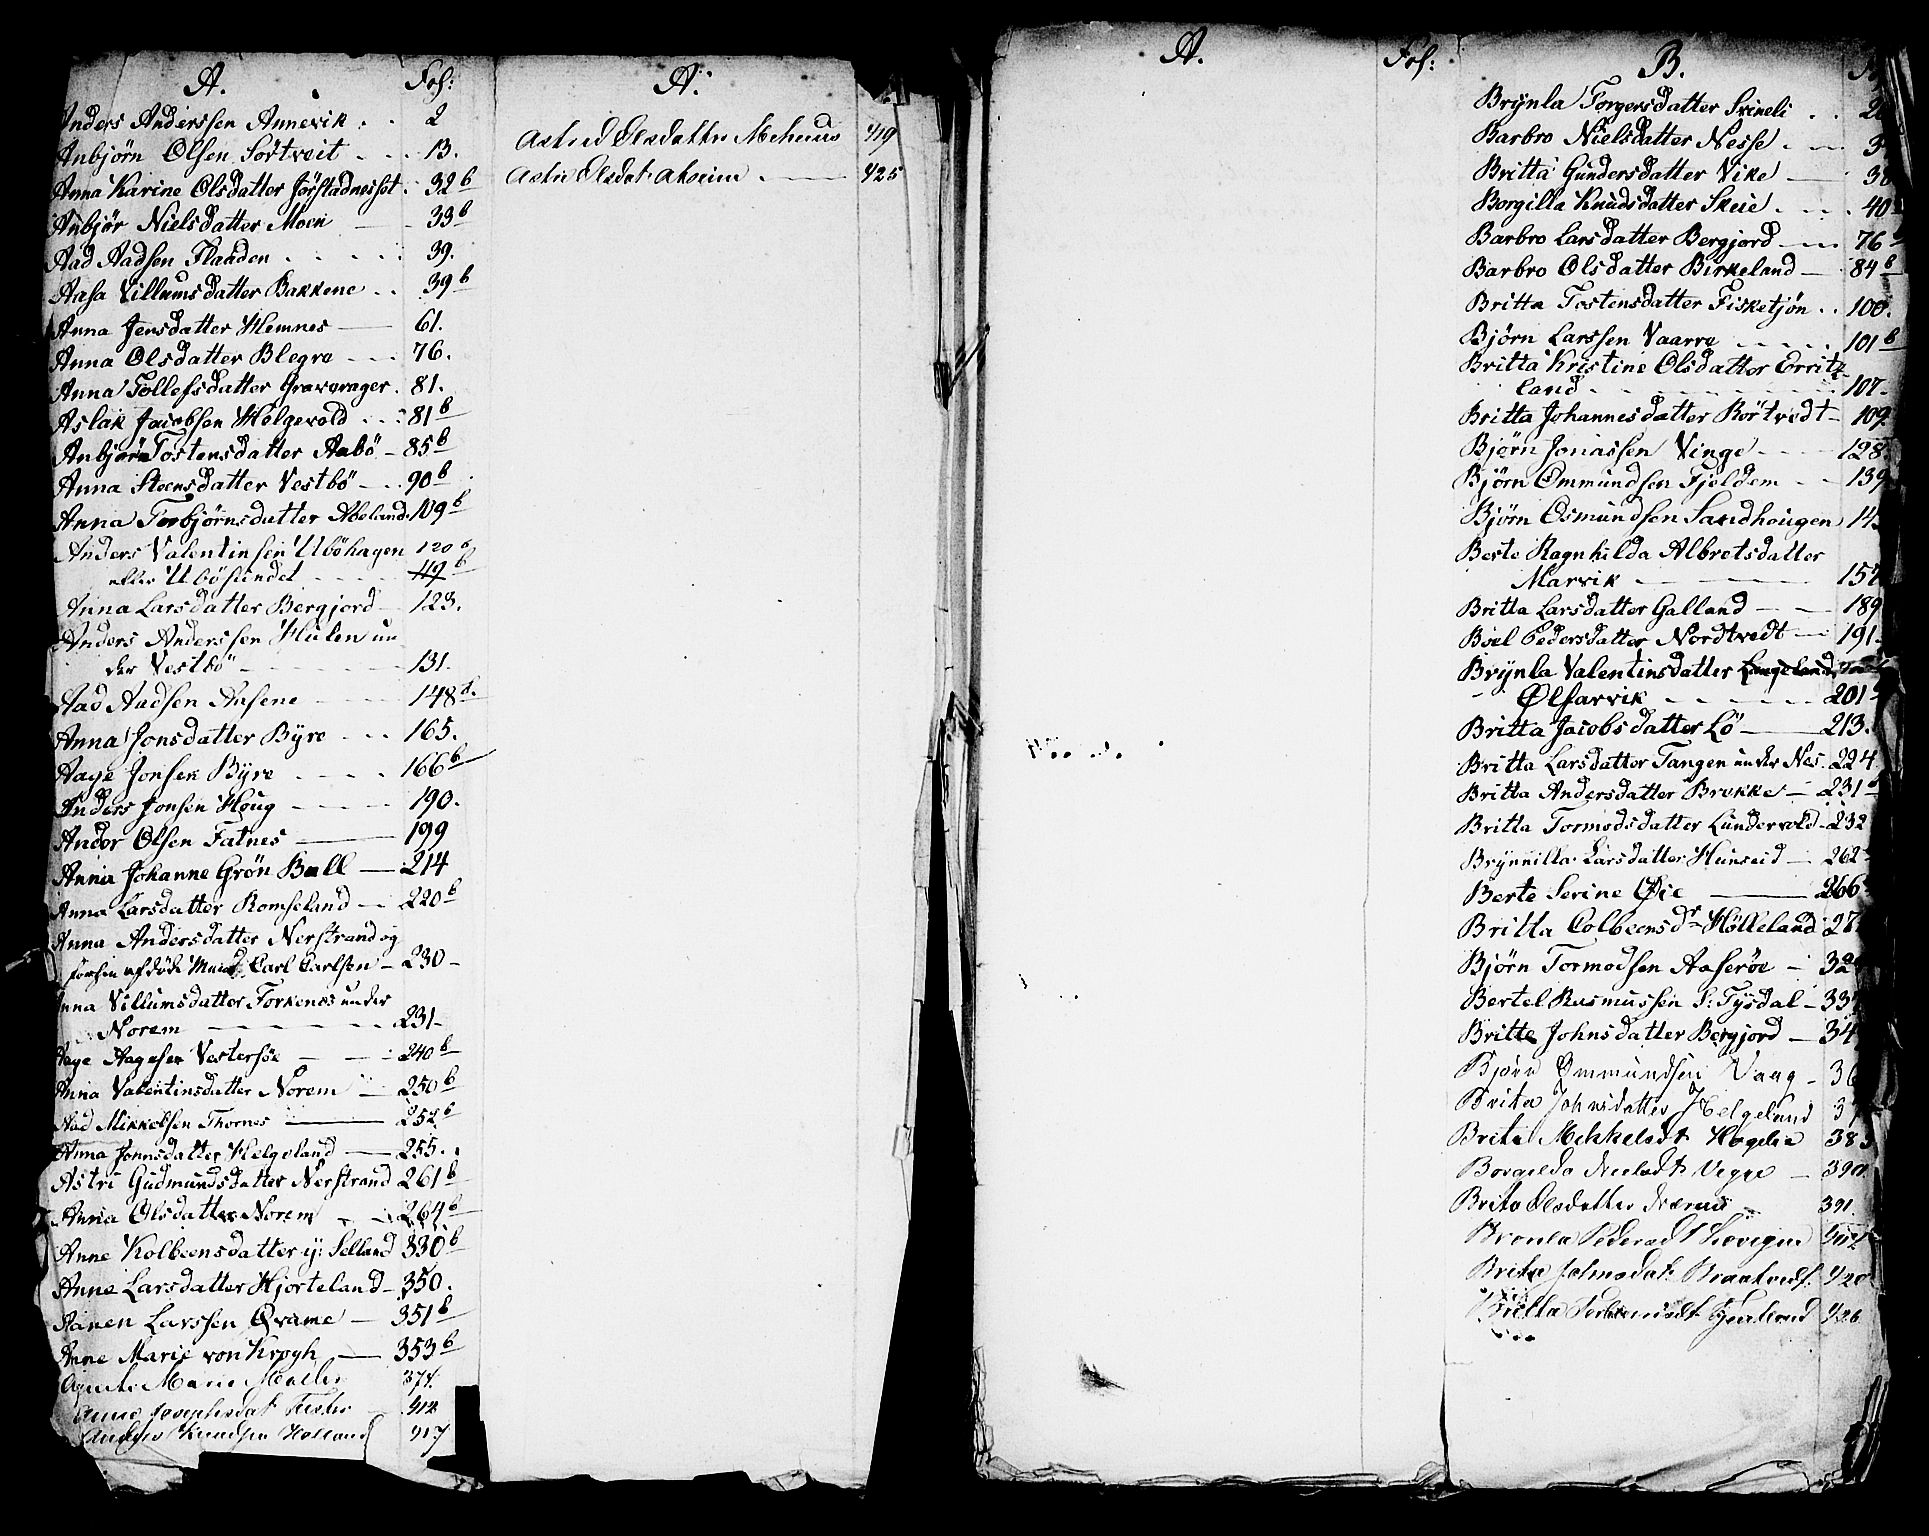 A. Fol:
Anders Anderssen Annevik 2
Anbjörn Olsen Sörtveit 13.
Anna Karine Olsdatter Jörstadnesset 32 b
Anbjör Nielsdatter Moen 33 b
Aad Aadsen Flauden 39.
Aasa Villumsdatter Bakkene 39 b
Anna Jensdatter Hemnes 61.
Anna Olsdatter Blegre 76.
Anna Tollefsdatter Gravavager 81.
Aslak Jacobsen Helgevold 81 b
Anbjörn Tostensdatter Aabö 85 b
Anna Steensdatter Vestbö 90 b
Anna Torbjörnsdatter Meland 109 b
Anders Valentinsen Uböhagen 120 b
eller Ubösundet 119 b
Anna Larsdatter Bergjord 123.
Anders Anderssen Hulen un
der Vestbö 131.
Aad Aadsen Aasene 148 b
Anna Jonsdatter Byre 165.
Aage Jonsen Byre 166 b
Anders Jonsen Houg 190.
Andor Olsen Fatnes 199
Anna Johanne Grön Ball 214
Anna Larsdatter Romseland 220 b
Anna Andersdatter Nerstrand og
afdöde Mand Carl Carlsen 230
Anna Villumsdatter Torkenes under
Norem 231
Aage Aagesen Vestersöe 240 b
Anna Valentinsdatter Norem 250 b
Aad Mikkelsen Thornes 252 b
Anna Jonnsdatter Helgeland 255.
Astri Gudmundsdatter Nerstrand 261 b
Anna Olsdatter Norem 264 b
Anne Kolbeensdatter y: Selland 330 b
Anne Larsdatter Hjorteland 350.
Aanen Larssen Qvame 351 b
Anne Marie von Krogh 353 b
Marie Möller 374.
Anne Josephsdat 412
Knudsen Holland 417
A.
Astrid Olsdatter Mehuus 419
Astri Olsdat 425
A. Fol:
B.
Brynla Torgersdatter Svineli
Barbro Nielsdatter Nesse
Britta Gundersdatter Vike
Borgilla Knudsdatter Skeie 40
Barbro Larsdatter Bergjord 76
Barbro Olsdatter Birkeland 84 b
Britta Tostensdatter Fisketjön 100.
Björn Larssen Vaarre 101 b
Britta Kristine Olsdatter Orrits
land 107.
Britta Johannesdatter Rörtvedt 109
Björn Jonassen Vinge 128.
Björn Ommundsen Fjeldem 139
Björn Osmundsen Sandhougen
Berte Ragnhilda Albretsdatter
Marvik 157
Britta Larsdatter Galland 189
Boel Pedersdatter Nordtvedt 191
Brynla Valentinsdatter Langeland
Ølfarvik 201
Britta Jacobsdatter Lö 213.
Britta Larsdatter Tangen under Nes 224
Britta Andersdatter Brekke 231 b
Britta Tormodsdatter Lundervold 232
Brynnilla Larsdatter Hunseid 262
Berte Serine Øie 266
Britta Colbeensdr Hölleland 27
Björn Tormodsen Aaseröe 32
Bertel Rasmussen S: Tysdal 33
Britte Johnsdatter Bergjord 34
Björn Ommundsen Vaag 36
Brita Johnsdatter Helgeland 37
Brita Mikkelsdt 383
Borgilda Nielsdt Vegge 390
Brita Olsdatter 391
Pedersdt
Brita Johnsdat 420
Britta 426